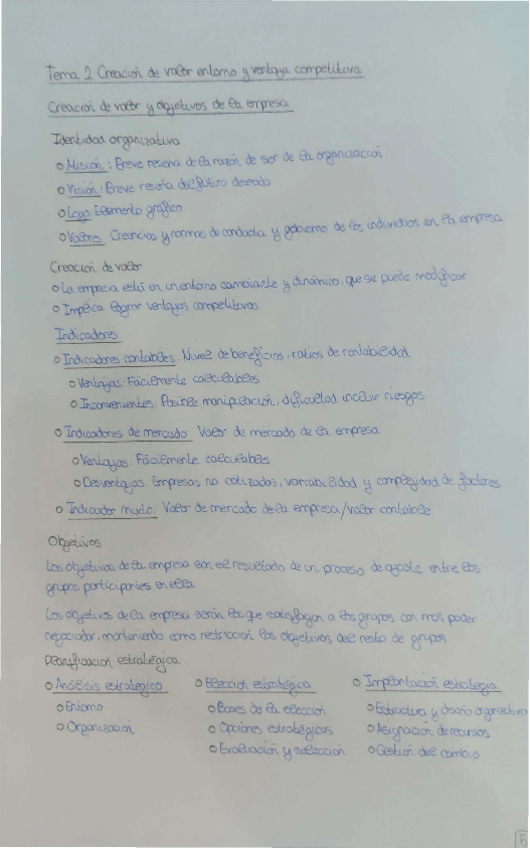 Tema 2 Creación de valor entorno y ventaja competitiva
Creación de valor y objetivos de la empresa
Identidad organizativa
o Misión: Breve reseña de la razón de ser de la organización
o Visión: Breve reseña del futuro deseado
o Logo: Elemento gráfico
o Valores: Creencias y normas de conducta y gobierno de los individuos en la empresa
Creación de valor
o La empresa está en un entorno cambiante y dinámico, que se puede modificar
o Implica lograr ventajas competitivas
Indicadores
o Indicadores contables: Nivel de beneficios, ratios de rentabilidad
o Ventajas: Fácilmente calculables
o Inconvenientes: Posible manipulación, dificultad incluir riesgos
o Indicadores de mercado: Valor de mercado de la empresa
o Ventajas: Fácilmente calculables
o Desventajas: Empresas no cotizadas, variabilidad y complejidad de factores
o Indicador mixto: Valor de mercado de la empresa/valor contable
Objetivos
Los objetivos de la empresa son el resultado de un proceso de ajuste entre los
grupos participantes en ella
Los objetivos de la empresa serán los que satisfagan a los grupos con más poder
negociador, manteniendo como restricción los objetivos del resto de grupos
Planificación estratégica
o Análisis estratégico o Elección estratégica o Implantación estrategia
o Entorno o Bases de la elección o Estructura y diseño organizativo
o Organización o Opciones estratégicas o Asignación de recursos
o Evaluación y selección o Gestión del cambio